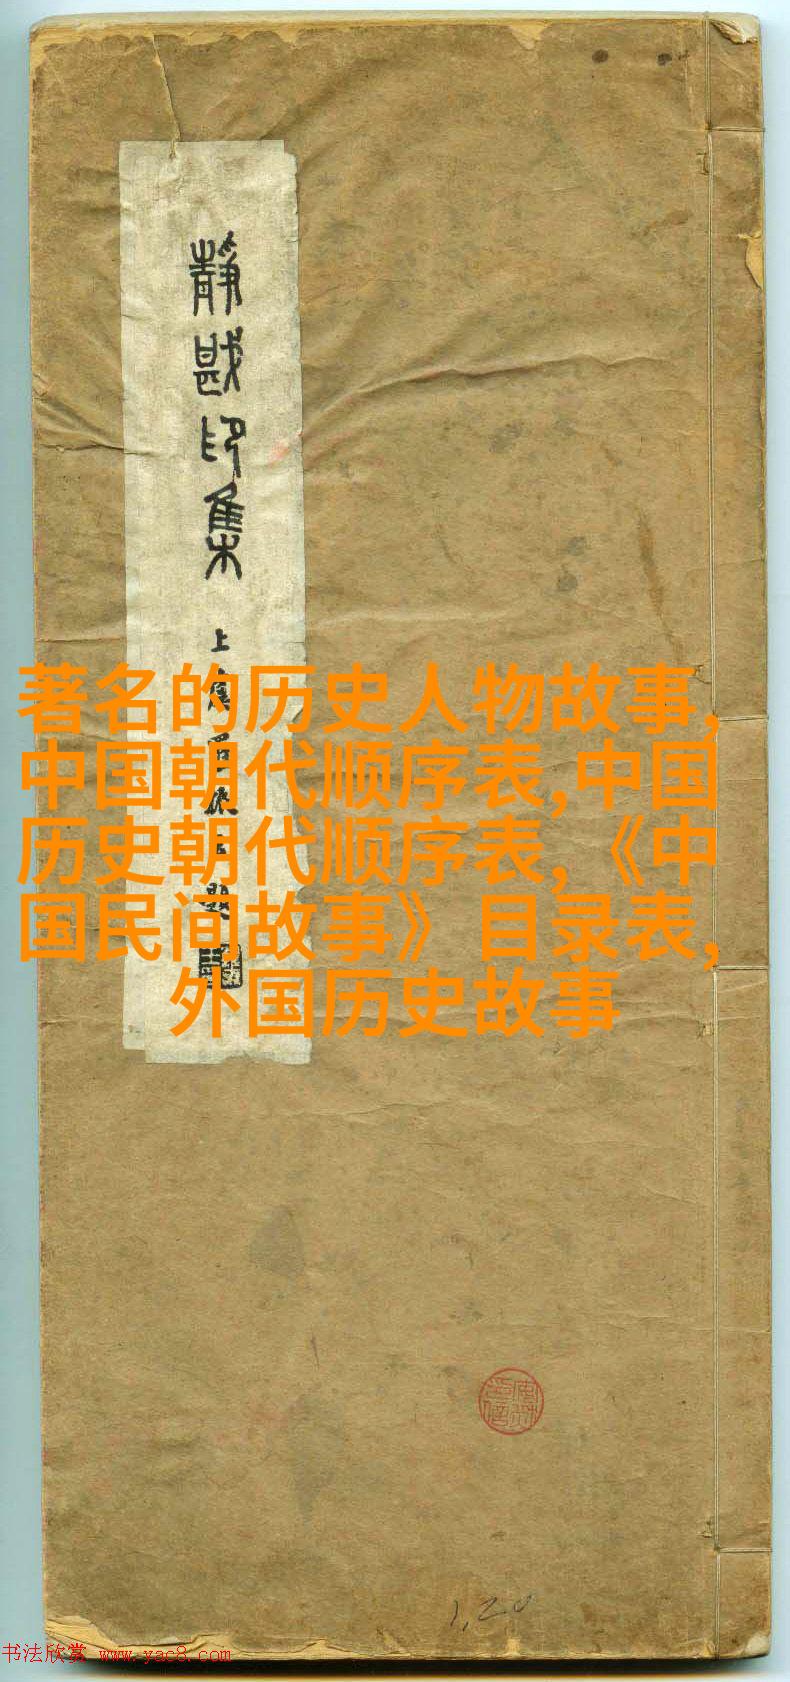 靜戡印集
上虞
題
著名的历史人物故事,
中国朝代顺序表,中国
历史朝代顺序表,《中
国民间故事》目录表,
外国历史故事
1,20
书法欣赏 www.yac8.com